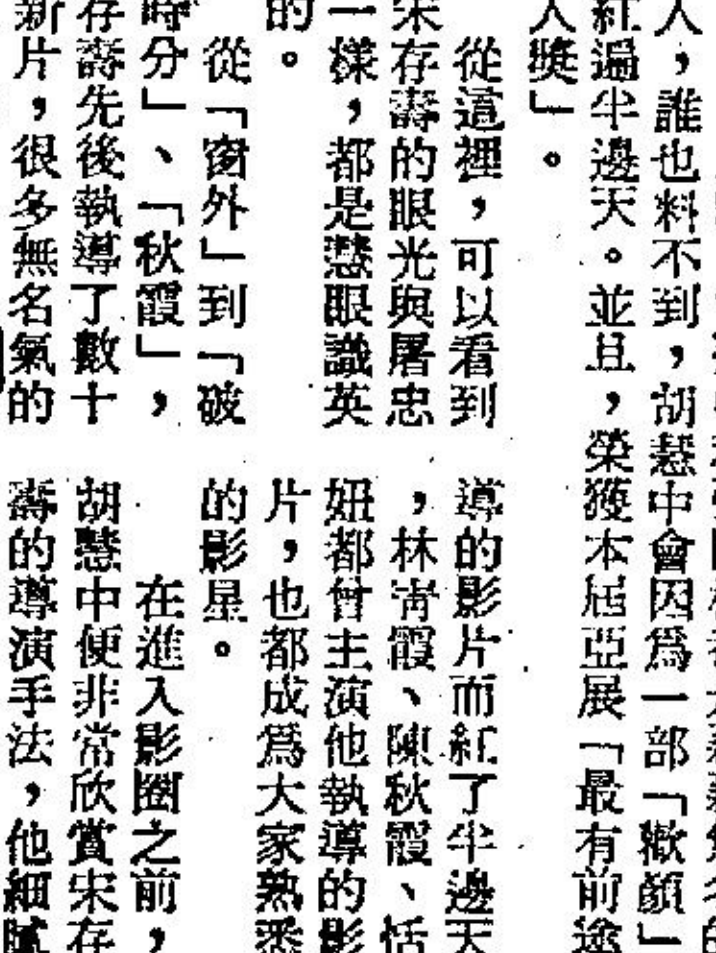 人，誰也料不到，胡慧中會因爲一部「歡顏」
紅遍半邊天。並且，榮獲本屆亞展「最有前途
人獎」。
從這裡，可以看到
宋存壽的眼光與屠忠
一樣，都是慧眼識英
的。
從「窗外」到「破
時分」、「秋霞」，
存壽先後執導了數十
新片，很多無名氣的
導的影片而紅了半邊天
，林青霞、陳秋霞、恬
妞都曾主演他執導的影
片，也都成爲大家熟悉
的影星。
在進入影圈之前，
胡慧中便非常欣賞宋存
壽的導演手法，他細膩